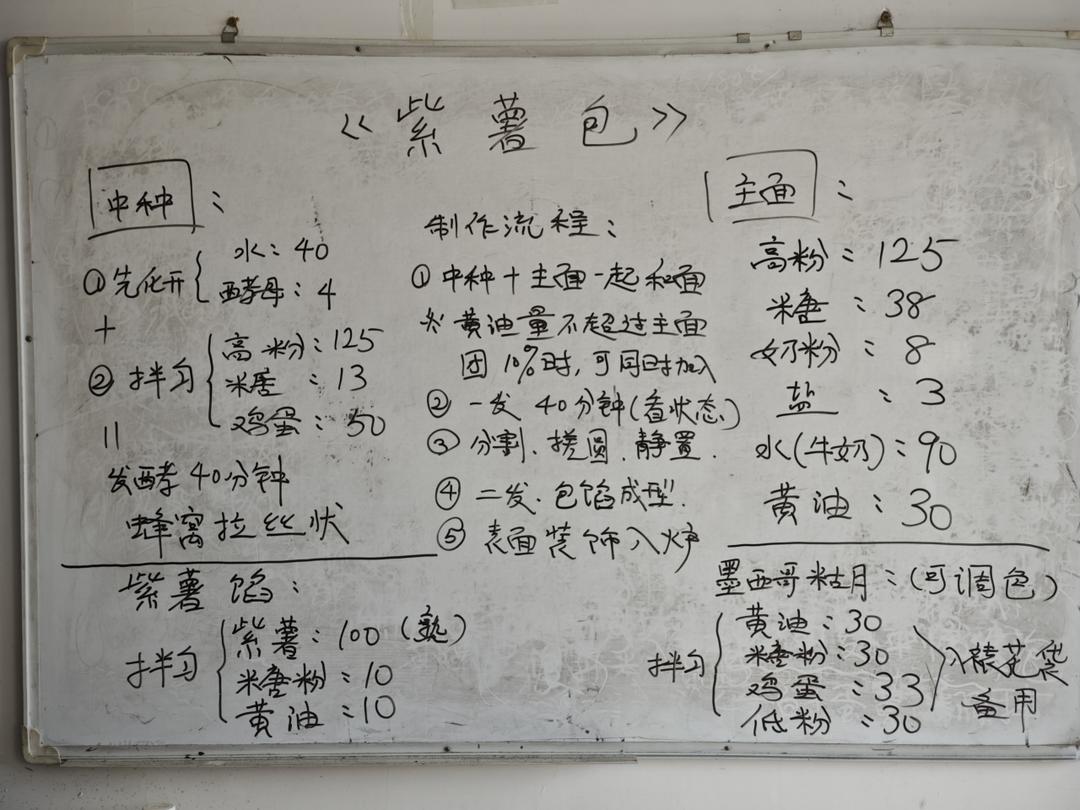 《紫薯包》
中种：
①先化开
水：40
酵母：4
+
②拌匀
高粉：125
糖：13
鸡蛋：50
=
发酵40分钟
蜂窝拉丝状
制作流程：
①中种+主面一起和面
※黄油量不超过主面
团10%时,可同时加入
②一发 40分钟(看状态)
③分割、搓圆、静置.
④二发、包馅成型.
⑤表面装饰入炉
主面：
高粉：125
糖：38
奶粉：8
盐：3
水(牛奶)：90
黄油：30
紫薯馅：
拌匀
紫薯：100(熟)
糖粉：10
黄油：10
墨西哥糊：(可调色)
拌匀
黄油：30
糖粉：30
鸡蛋：33
低粉：30
入裱花袋
备用